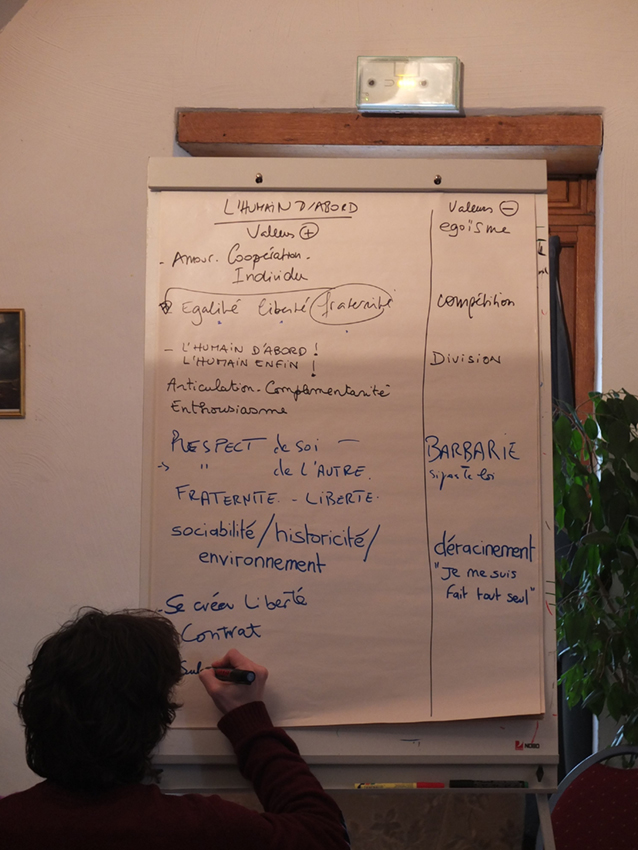 L'HUMAIN D'ABORD
Valeurs +
- Amour. Coopération.
Individu
Egalité liberté fraternité
- L'HUMAIN D'ABORD !
L'HUMAIN ENFIN !
Articulation - Complémentarité
Enthousiasme
RESPECT de soi —
-> " de L'AUTRE.
FRATERNITE. - LIBERTE.
sociabilité/historicité/
environnement
- Se créer Liberté
Contrat
Valeurs -
egoïsme
compétition
DIVISION
BARBARIE
si pas de loi
déracinement
"Je me suis
fait tout seul"
NOBO